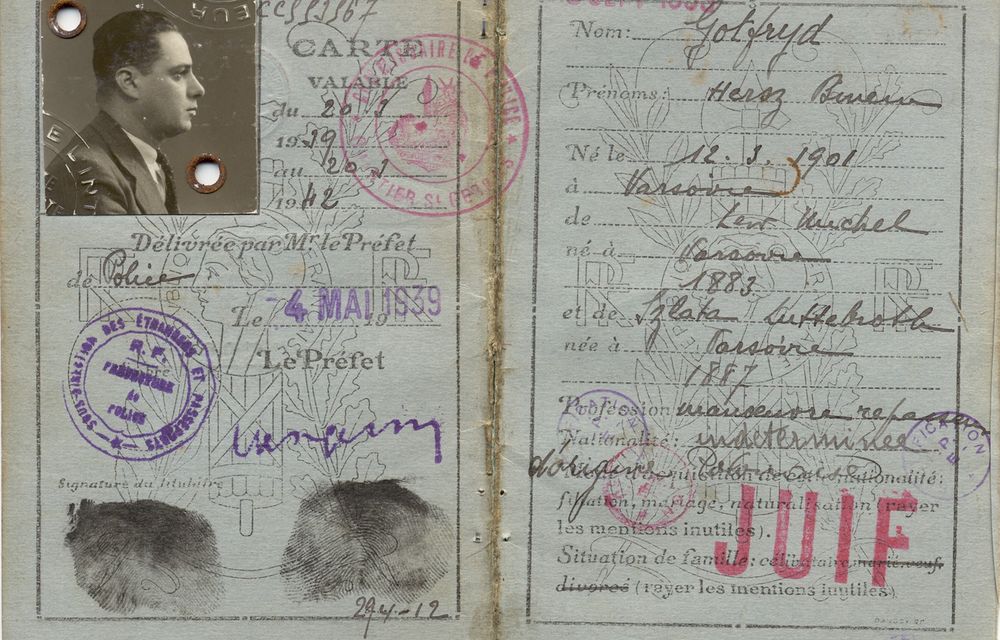 CARTE
VALABLE
du 20 3
1939
au 20 3
1942
Délivrée par Mr le Préfet
de Police
Le -4 MAI 1939
Le Préfet
SOUS-DIRECTION DES ÉTRANGERS ET PASSEPORTS
R.F.
PRÉFECTURE
de
POLICE
Signature du titulaire
Nom: Gotfryd
Prénoms: Hersz
Né le 12. 3. 1901
à Varsovie
de Michel
né à Varsovie
1883
et de Szlata
née à Varsovie
1887
Profession manœuvre
Nationalité: indéterminée
d'origine
Mode d'acquisition de cette nationalité:
filiation, mariage, naturalisation (rayer
les mentions inutiles).
JUIF
Situation de famille: célibataire, marié, veuf,
divorcé (rayer les mentions inutiles)